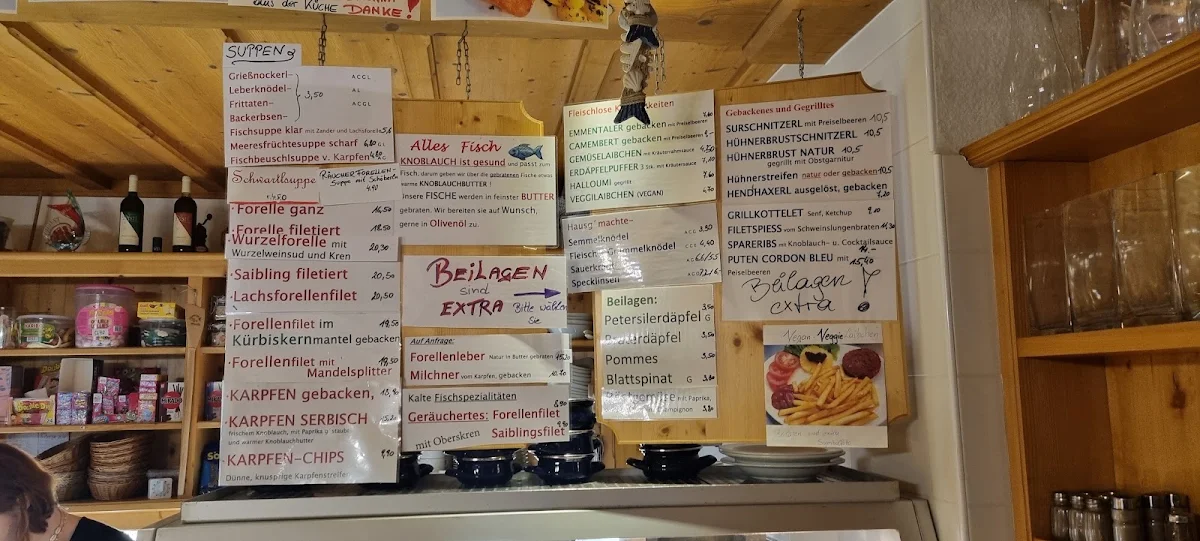 aus der KÜCHE DANKE!
SUPPEN
Grießnockerl- ACGL
Leberknödel- AL
Frittaten- 3,50 ACGL
Backerbsen-
Fischsuppe klar mit Zander und Lachsforelle
Meeresfrüchtesuppe scharf
Fischbeuschlsuppe v. Karpfen
Schwartlsuppe
RÄUCHERFORELLEN-
Suppe mit
4,90
Forelle ganz 16,50
Forelle filetiert 18,50
Wurzelforelle mit
Wurzelweinsud und Kren 20,30
Saibling filetiert 20,50
Lachsforellenfilet 20,50
Forellenfilet im 18,50
Kürbiskernmantel gebacken
Forellenfilet mit 18,50
Mandelsplitter
KARPFEN gebacken,
KARPFEN SERBISCH
frischem Knoblauch, mit Paprika g'staubt
und warmer Knoblauchbutter
KARPFEN-CHIPS 9,90
Dünne, knusprige Karpfenstreifen
Alles Fisch
KNOBLAUCH ist gesund und passt zum
Fisch, darum geben wir über die gebratenen Fische etwas
warme KNOBLAUCHBUTTER!
Unsere FISCHE werden in feinster BUTTER
gebraten. Wir bereiten sie auf Wunsch,
gerne in Olivenöl zu.
BEILAGEN
sind
EXTRA Bitte wählen
Sie
Auf Anfrage:
Forellenleber Natur in Butter gebraten
Milchner vom Karpfen, gebacken 10,70
Kalte Fischspezialitäten
Geräuchertes: Forellenfilet
mit Oberskren Saiblingsfilet
Fleischlose
EMMENTALER gebacken mit Preiselbeeren
CAMEMBERT gebacken mit Preiselbeeren
GEMÜSELAIBCHEN mit Kräuterrahmsauce
ERDÄPFELPUFFER 3 Stk. mit Kräutersauce
HALLOUMI gegrillt
VEGGILAIBCHEN (VEGAN) 4,70
Hausg'machte-
Semmelknödel ACG 3,50
Fleisch- Grammelknödel 6,40
Sauerkraut
Specklinsen
Beilagen:
Petersilerdäpfel G 3,50
Pommes 3,50
Blattspinat G
mit Paprika,
Champignon
Gebackenes und Gegrilltes
SURSCHNITZERL mit Preiselbeeren 10,5
HÜHNERBRUSTSCHNITZERL 10,5
HÜHNERBRUST NATUR 10,5
gegrillt mit Obstgarnitur
Hühnerstreifen natur oder gebacken 10,5
HENDHAXERL ausgelöst, gebacken
GRILLKOTTELET Senf, Ketchup
FILETSPIESS vom Schweinslungenbraten
SPARERIBS mit Knoblauch- u. Cocktailsauce
PUTEN CORDON BLEU mit
Peiselbeeren
Beilagen
extra !
Vegan Veggie